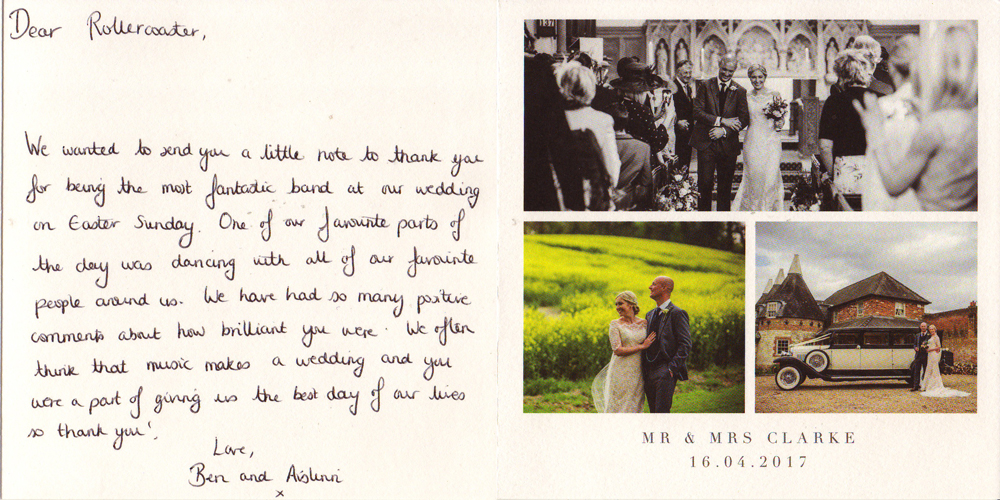 Dear Rollercoaster,
We wanted to send you a little note to thank you
for being the most fantastic band at our wedding
on Easter Sunday. One of our favourite parts of
the day was dancing with all of our favourite
people around us. We have had so many positive
comments about how brilliant you were. We often
think that music makes a wedding and you
were a part of giving us the best day of our lives
so thank you!
Love,
Ben and Aislinn
x
137
MR & MRS CLARKE
16.04.2017